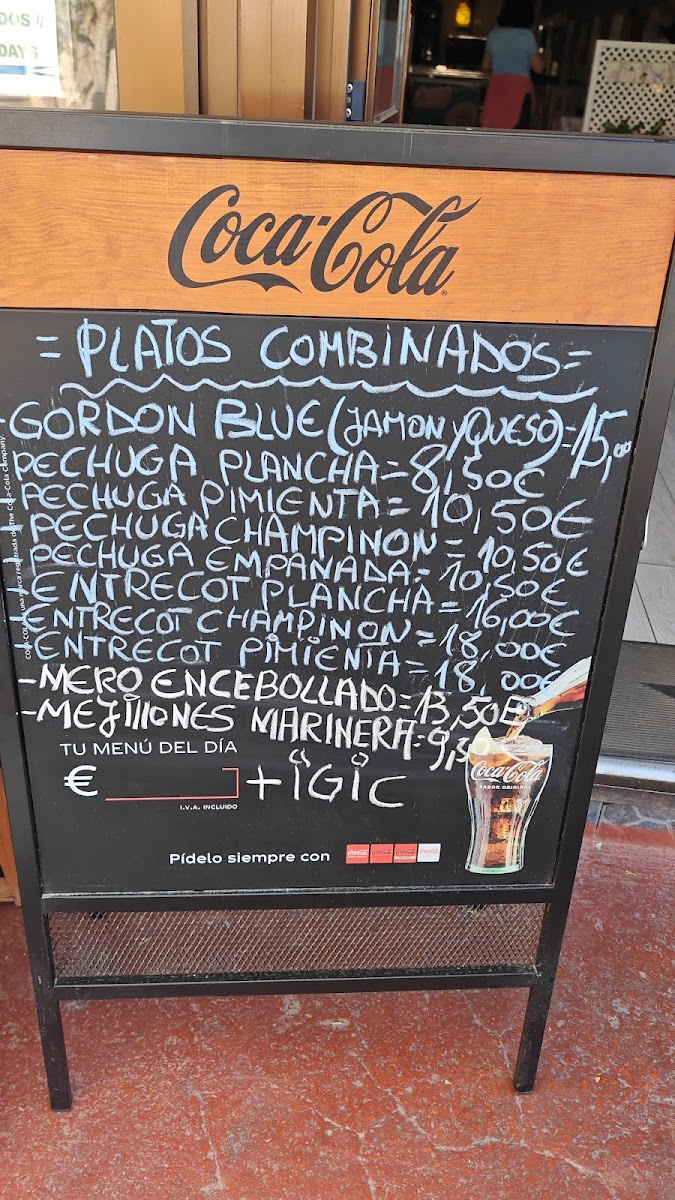 DOS //
DAYS
Coca-Cola
= PLATOS COMBINADOS =
-GORDON BLUE (JAMON Y QUESO)=15,00
-PECHUGA PLANCHA=8,50€
-PECHUGA PIMIENTA=10,50€
-PECHUGA CHAMPINON=10,50€
-PECHUGA EMPANADA=10,50€
-ENTRECOT PLANCHA=16,00€
-ENTRECOT CHAMPINON=18,00€
-ENTRECOT PIMIENTA=18,00€
-MERO ENCEBOLLADO=13,50€
-MEJILLONES MARINERA=9,50
TU MENÚ DEL DÍA
€ +iGiC
I.V.A. INCLUIDO
Coca-Cola
SABOR ORIGINAL
Pídelo siempre con